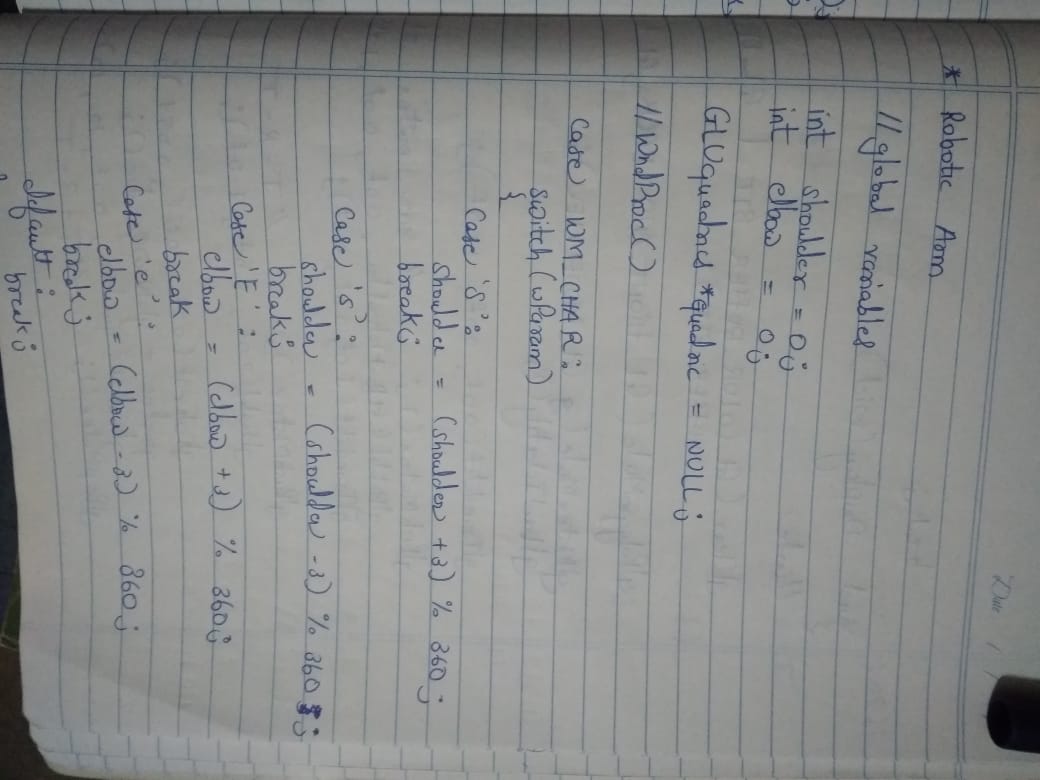 Date / /
* Robotic Arm
// global variables
int shoulder = 0;
int elbow = 0;
GLUquadric *quadric = NULL;
// WndProc()
Case WM_CHAR:
switch (wParam)
{
Case 'S':
shoulder = (shoulder + 3) % 360;
break;
Case 's':
shoulder = (shoulder - 3) % 360;
break;
Case 'E':
elbow = (elbow + 3) % 360;
break
Case 'e':
elbow = (elbow - 3) % 360;
break;
default:
break;